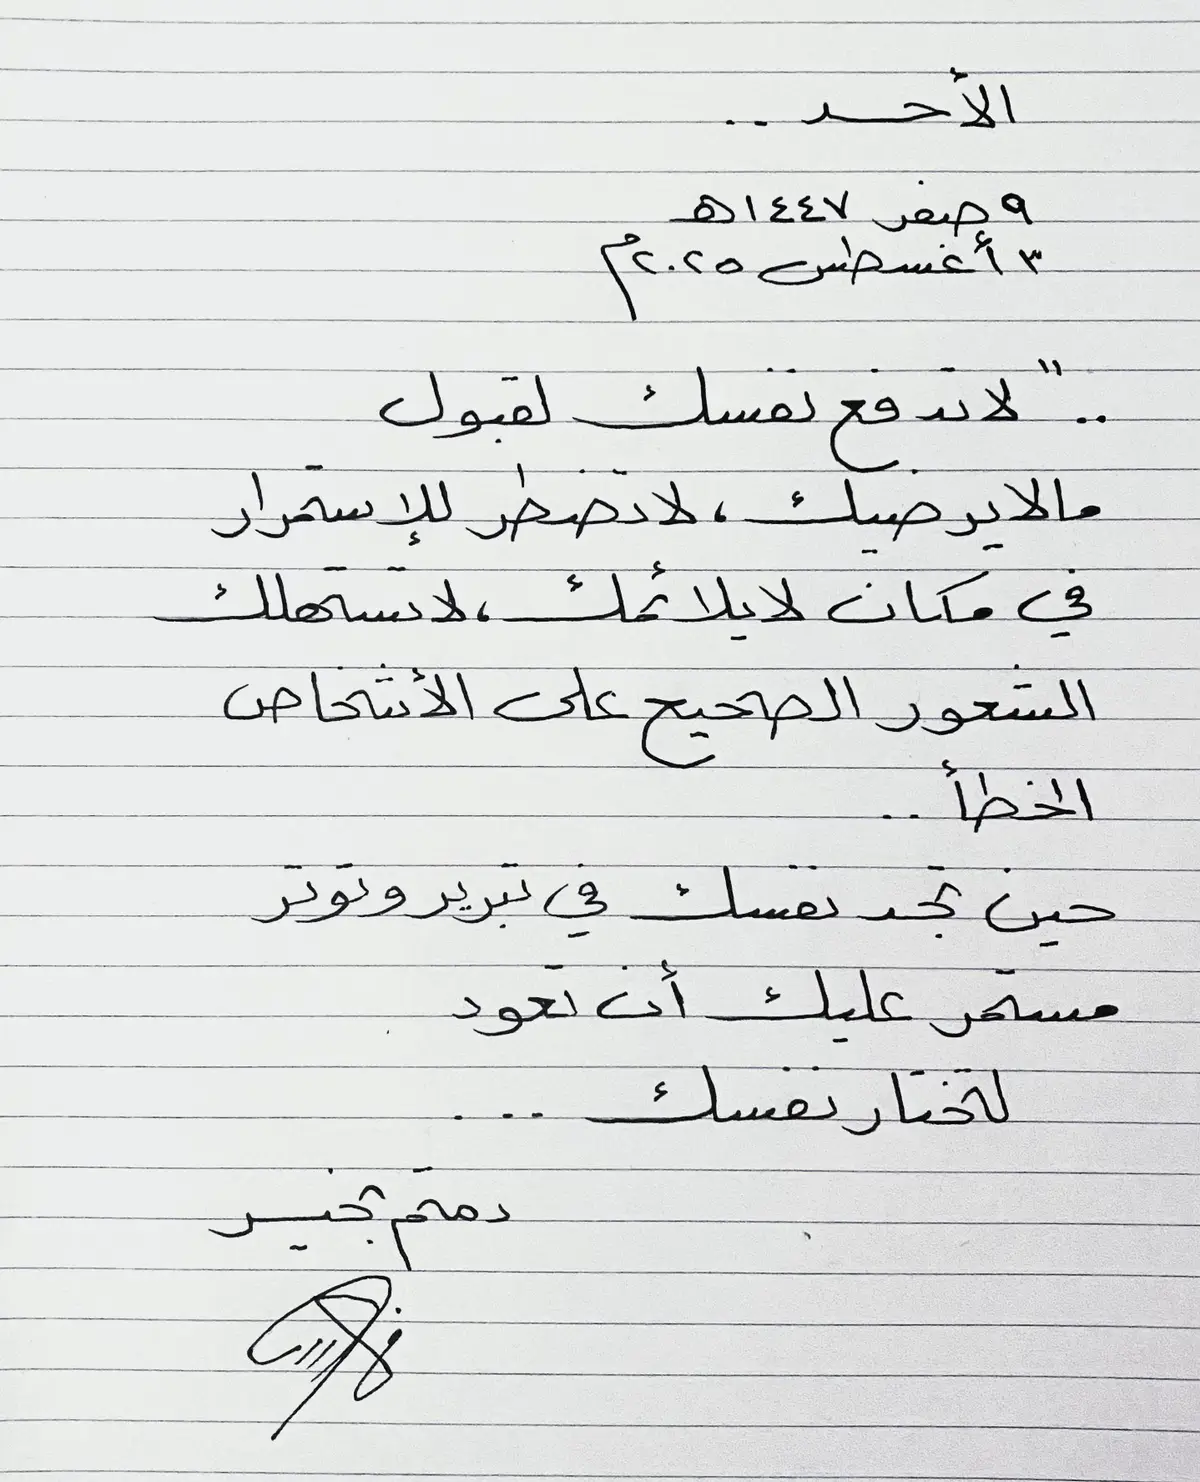 الأحد ..
٩ صفر ١٤٤٧هـ
٣ أغسطس ٢٠٢٥م
.. " لا تدفع نفسك لقبول
مالا يرضيك ، لا تضطر للإستمرار
في مكان لا يلائمك ، لا تستهلك
الشعور الصحيح على الأشخاص
الخطأ ..
حين تجد نفسك في تبرير وتوتر
مستمر عليك أن تعود
لتختار نفسك ....
دمتم بخير